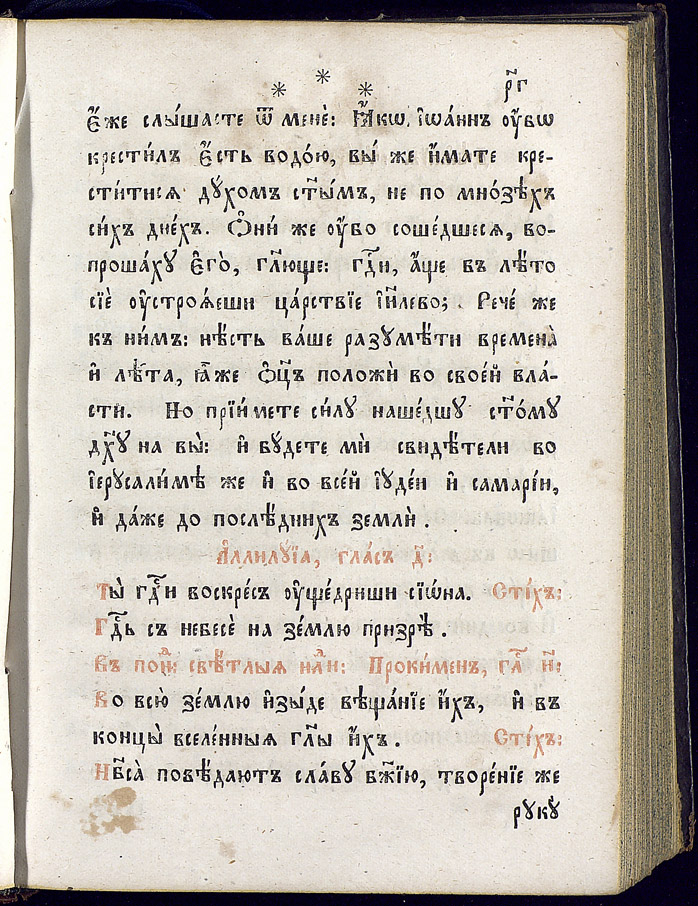 * * * р҃г
Е҆́же слы́шасте ѿ менѐ: Ꙗ҆́кѡ і҆ѡа́ннъ ᲂу҆́бѡ
крести́лъ є҆́сть водо́ю, вы́ же и҆́мате кре-
сти́тисѧ дꙋ́хомъ ст҃ы́мъ, не по мно́зѣхъ
си́хъ дне́хъ. Ѻ҆ни́ же ᲂу҆́бо соше́дшесѧ, во-
проша́хꙋ є҆го̀, гл҃юще: гдⷭ҇и, а҆́ще въ лѣ́то
сїѐ ᲂу҆строѧ́еши ца́рствїе і҆и҃лево; Рече́ же
къ ни́мъ: нѣ́сть ва́ше разꙋмѣ́ти временà
и҆ лѣ́та, ꙗ҆̀же ѻ҆ц҃ъ положѝ во свое́й вла́-
сти. Но прїи́мете си́лꙋ наше́дшꙋ ст҃о́мꙋ
дх҃ꙋ на вы̀: и҆ бꙋ́дете мѝ свидѣ́тели во
і҆ерꙋсали́мѣ же и҆ во все́й і҆ꙋде́и и҆ самарі́и,
и҆ да́же до послѣ́днихъ землѝ.
А҆ллилꙋ́їа, гла́съ д҃:
Ты̀ гдⷭ҇и воскре́съ ᲂу҆ще́дриши сїѡ́на. Сті́хъ:
Гдⷭ҇ь съ небесѐ на зе́млю призрѣ̀.
Въ пон҃ⷣ свѣ́тлыѧ нлⷣи: Проки́менъ, гла҃ и҃:
Во всю̀ зе́млю и҆зы́де вѣща́нїе и҆́хъ, и҆ въ
концы̀ вселе́нныѧ гл҃ы и҆́хъ. Сті́хъ:
Нб҃сà повѣ́даютъ сла́вꙋ бж҃їю, творе́нїе же
рꙋкꙋ̀